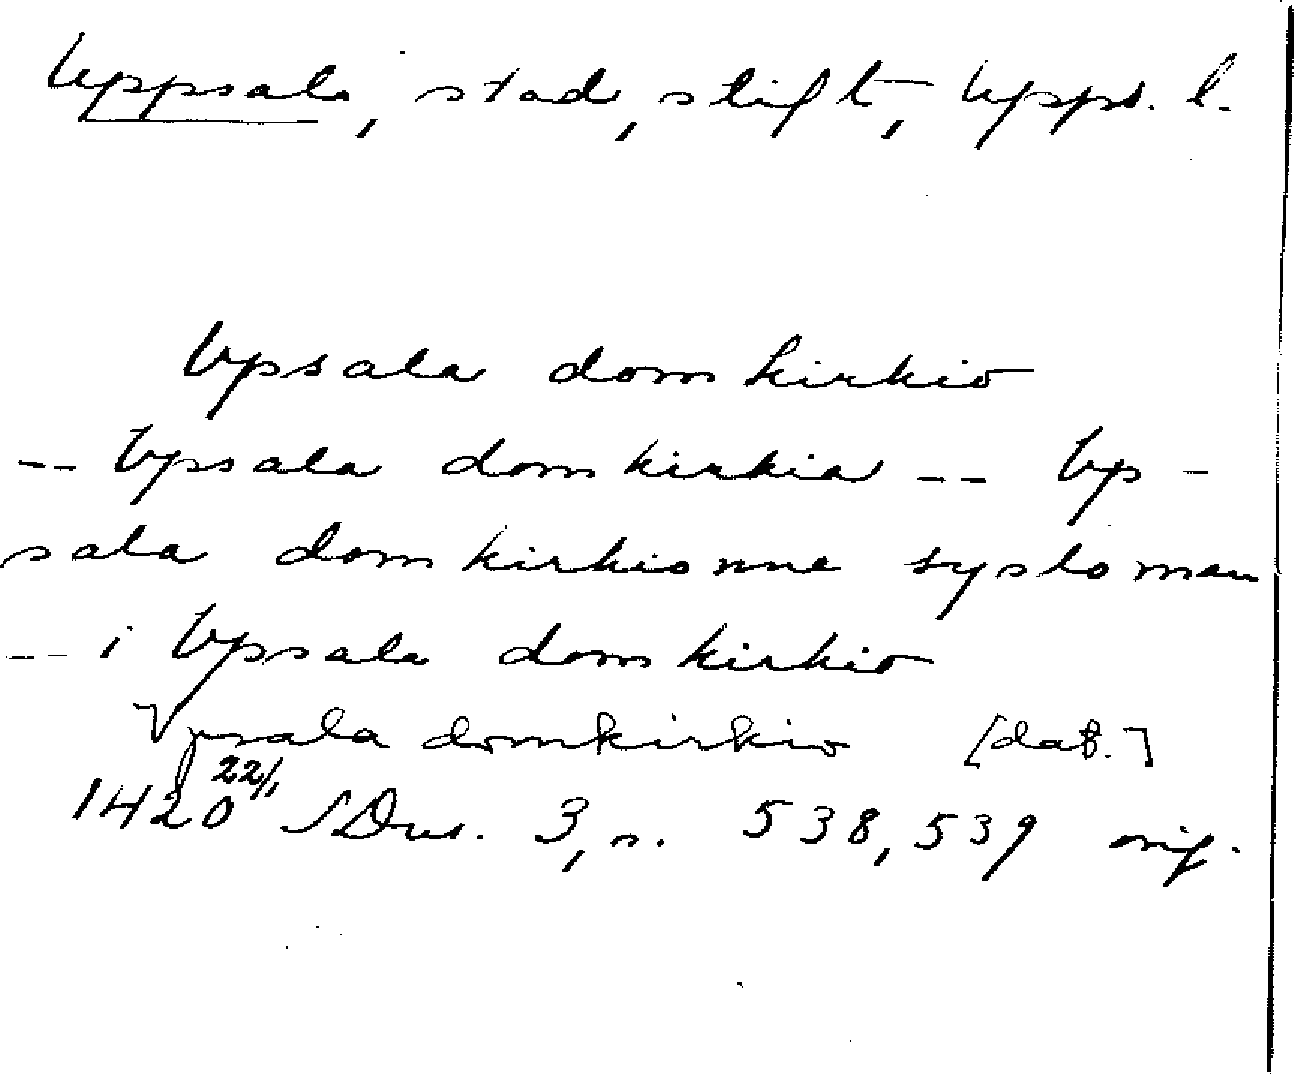 Uppsala, stad, stift, Upps. l.
Vpsala domkirkio
-- Vpsala domkirkia -- Vp-
sala domkirkionne sysloman
-- i Vpsala domkirkio
Vpsala domkirkio [dat.]
1420 22/1 SDns. 3, s. 538, 539 orig.